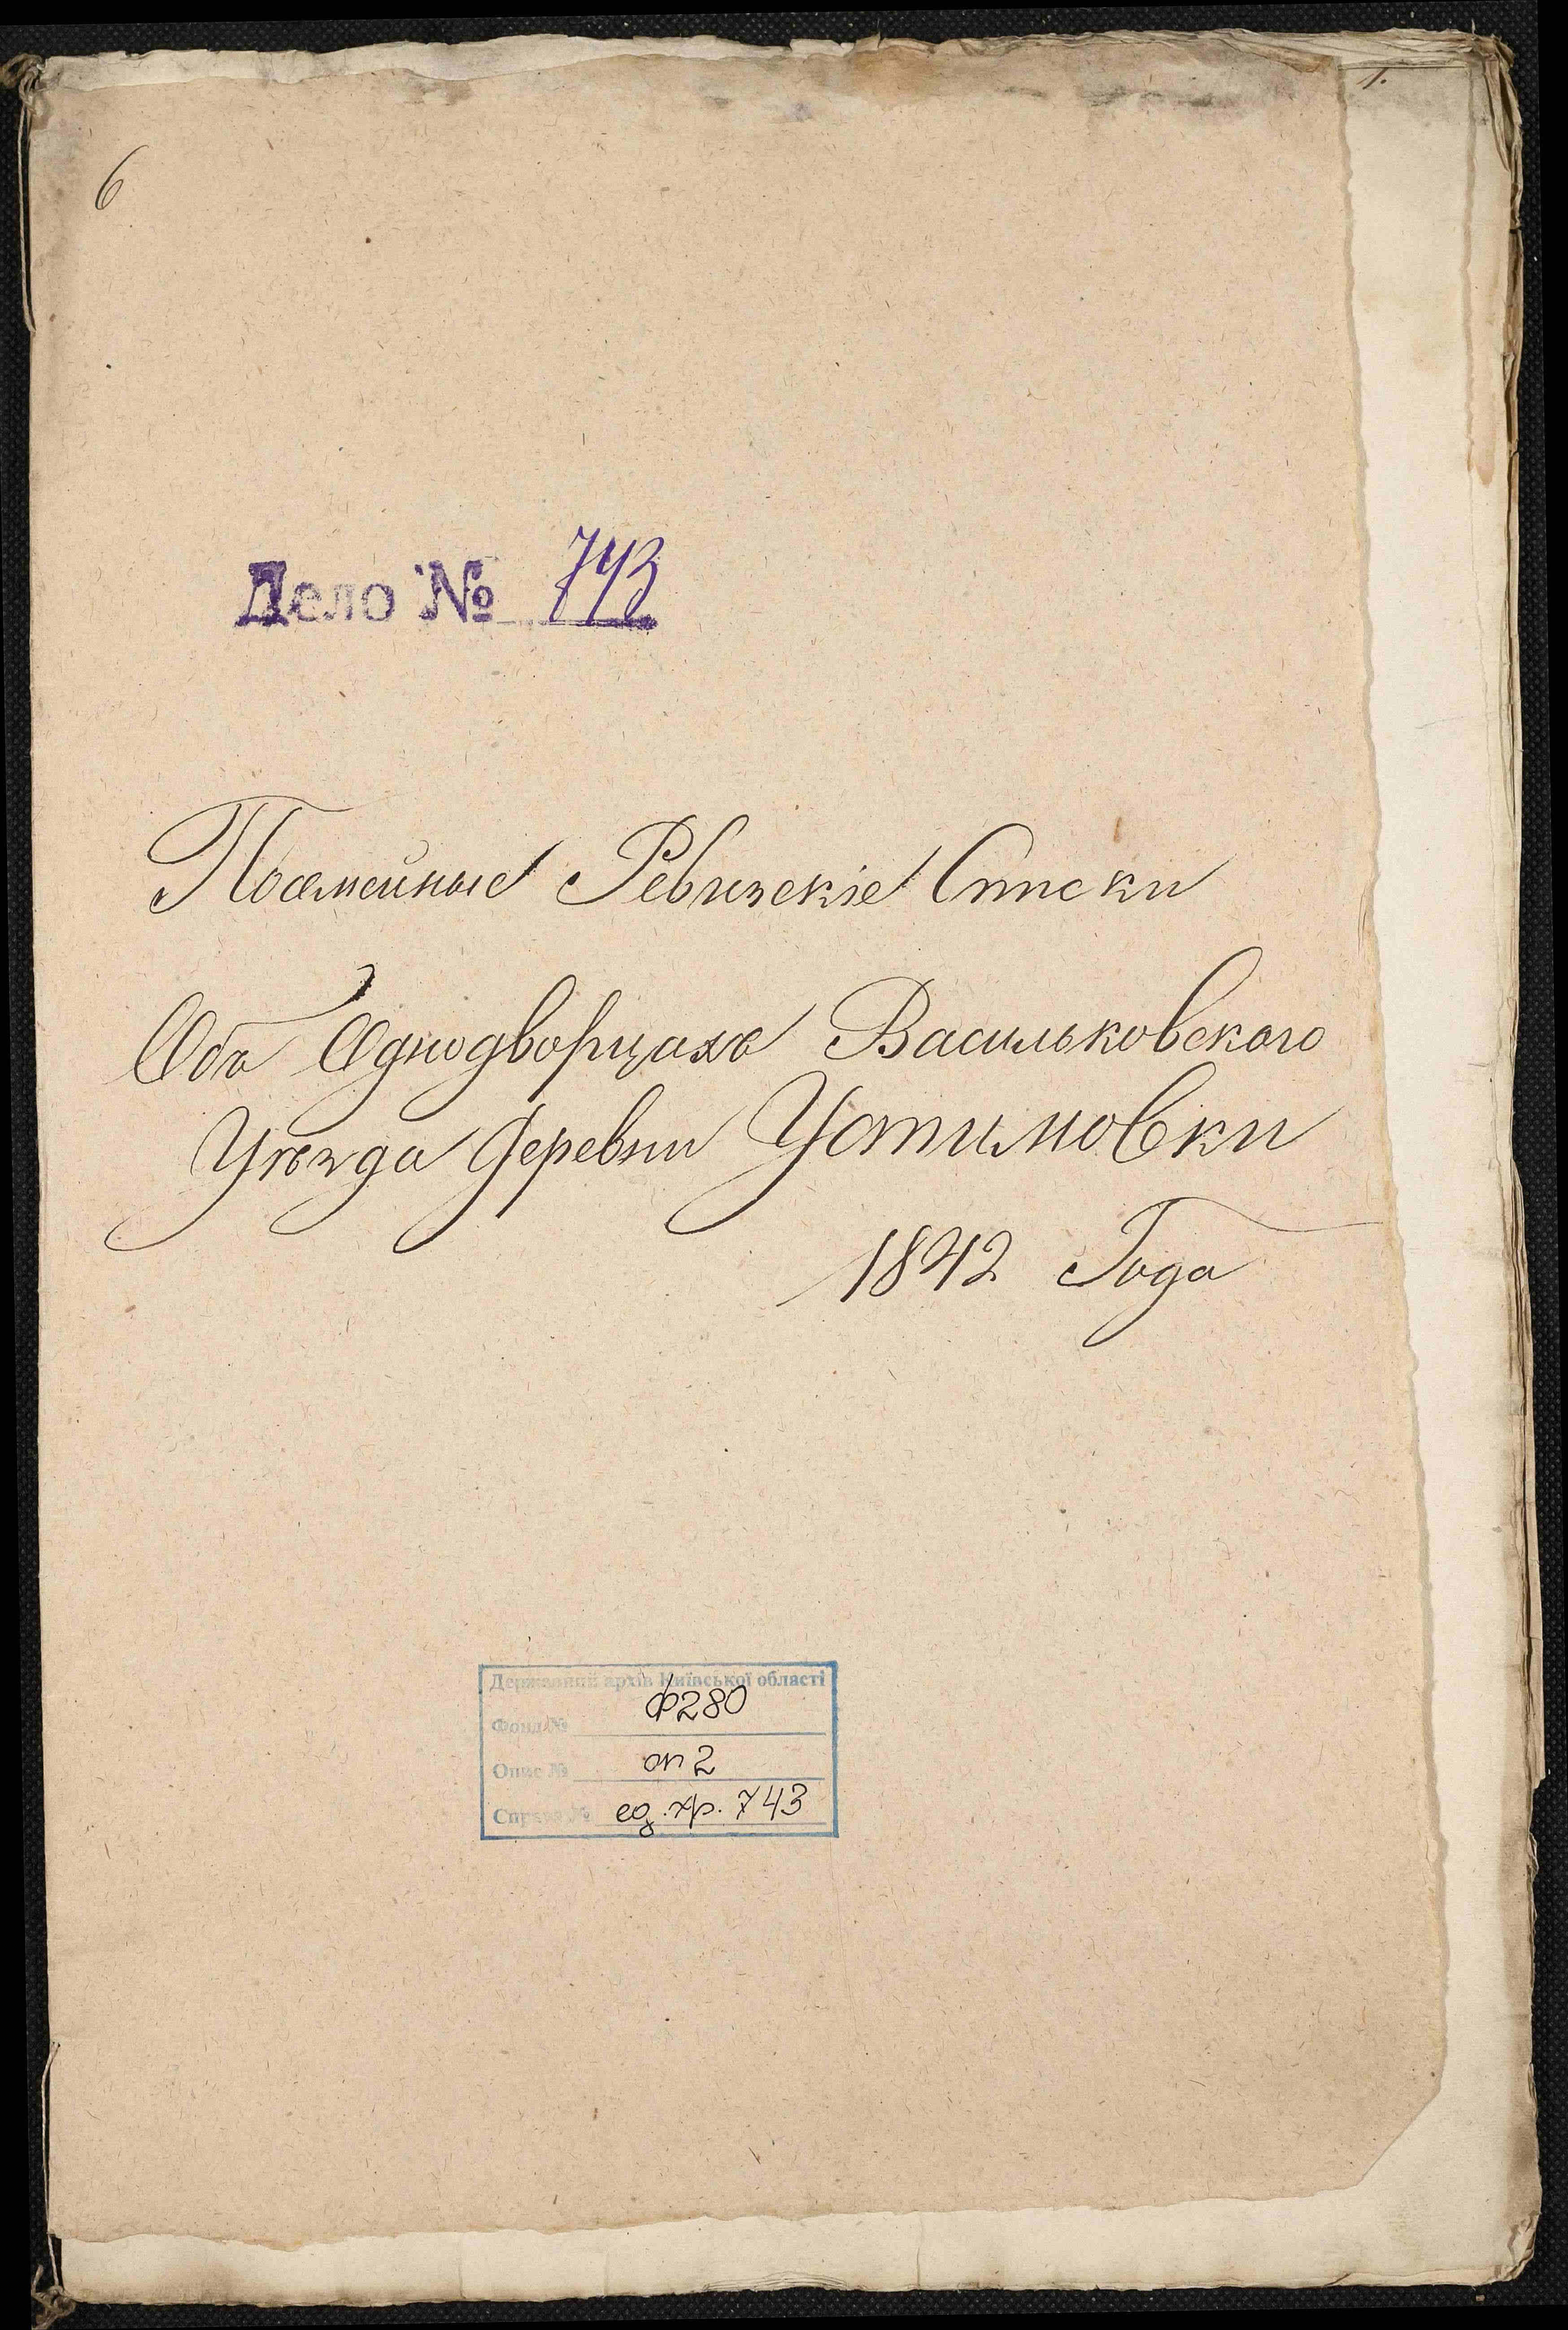 1.
6
Дело № 743
Посемейные Ревизскіе Списки
Объ Однодворцахъ Васильковского
Уѣзда Деревни Устимовки
1842 Года
Державний архів Київської області
Фонд № ф280
Опис № оп 2
Справа № ед.хр. 743